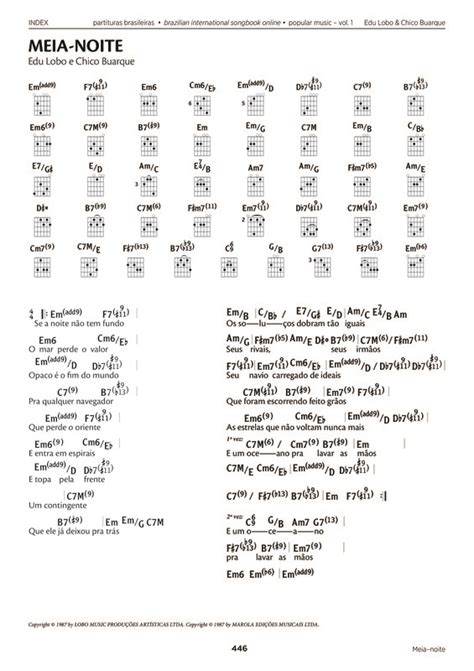 INDEX partituras brasileiras • brazilian international songbook online • popular music – vol. 1 Edu Lobo & Chico Buarque
MEIA-NOITE
Edu Lobo e Chico Buarque
Em(add9) F7(9/♯11) Em6 Cm6/E♭ Em(add9)/D D♭7(♯9/♯11) C7(9) B7(♭9/♭13)
Em6(9) C7M(9) B7(♯9) Em Em/G C7M Em/B C/B♭
E7/G♯ E/D Am/C E7/4/B Am7 Am/G F♯m7(♭5) Am/E
D♯° B7(♭9) C7M(6) F♯m7(11) Em7(11) D♭7(♯9/♯11) C7M(9/♯11) Em7(9)
Cm7(9) C7M/E F♯7(♭13) B7(♭9/♭13) C6/9 G/B G7(13) F♯7(♭9/♭13) Em(♭6)
4/4 Em(add9) F7(9/♯11)
Se a noite não tem fundo
Em6 Cm6/E♭
O mar perde o valor
Em(add9)/D D♭7(♯9/♯11)
Opaco é o fim do mundo
C7(9) B7(♭9/♭13)
Pra qualquer navegador
Em(add9) F7(9/♯11)
Que perde o oriente
Em6(9) Cm6/E♭
E entra em espirais
Em(add9)/D D♭7(♯9/♯11)
E topa pela frente
C7M(9)
Um contingente
B7(♯9) Em Em/G C7M
Que ele já deixou pra trás
Em/B C/B♭ / E7/G♯ E/D Am/C E7/4/B Am
Os so—lu—ços dobram tão iguais
Am/G F♯m7(♭5) Am/E D♯° B7(♭9) C7M(6) / F♯m7(11)
Seus rivais, seus irmãos
F7(9/♯11) Em7(11) Cm6/E♭ Em(add9)/D / D♭7(♯9/♯11)
Seu navio carregado de ideais
C7M(9/♯11) B7(♯9) Em7(9) F7(9/♯11)
Que foram escorrendo feito grãos
Em6(9) Cm6/E♭ Em(add9)/D D♭7(♯9/♯11)
As estrelas que não voltam nunca mais
1ª vez: C7M(6) / Cm7(9) B7(♯9) Em
E um oce—ano pra lavar as mãos
C7M/E Cm6/E♭ Em(add9)/D D♭7(♯9/♯11)
C7(9) / F♯7(♭13) B7(♭9/♭13) Em F7(9/♯11)
2ª vez: C6/9 G/B Am7 G7(13)
E um o—ce—a—no
F♯7(♭9/♭13) B7(♯9) Em7(9)
pra lavar as mãos
Em6 Em(♭6) Em(add9)
Copyright © 1987 by LOBO MUSIC PRODUÇÕES ARTÍSTICAS LTDA. Copyright © 1987 by MAROLA EDIÇÕES MUSICAIS LTDA.
446 Meia-noite